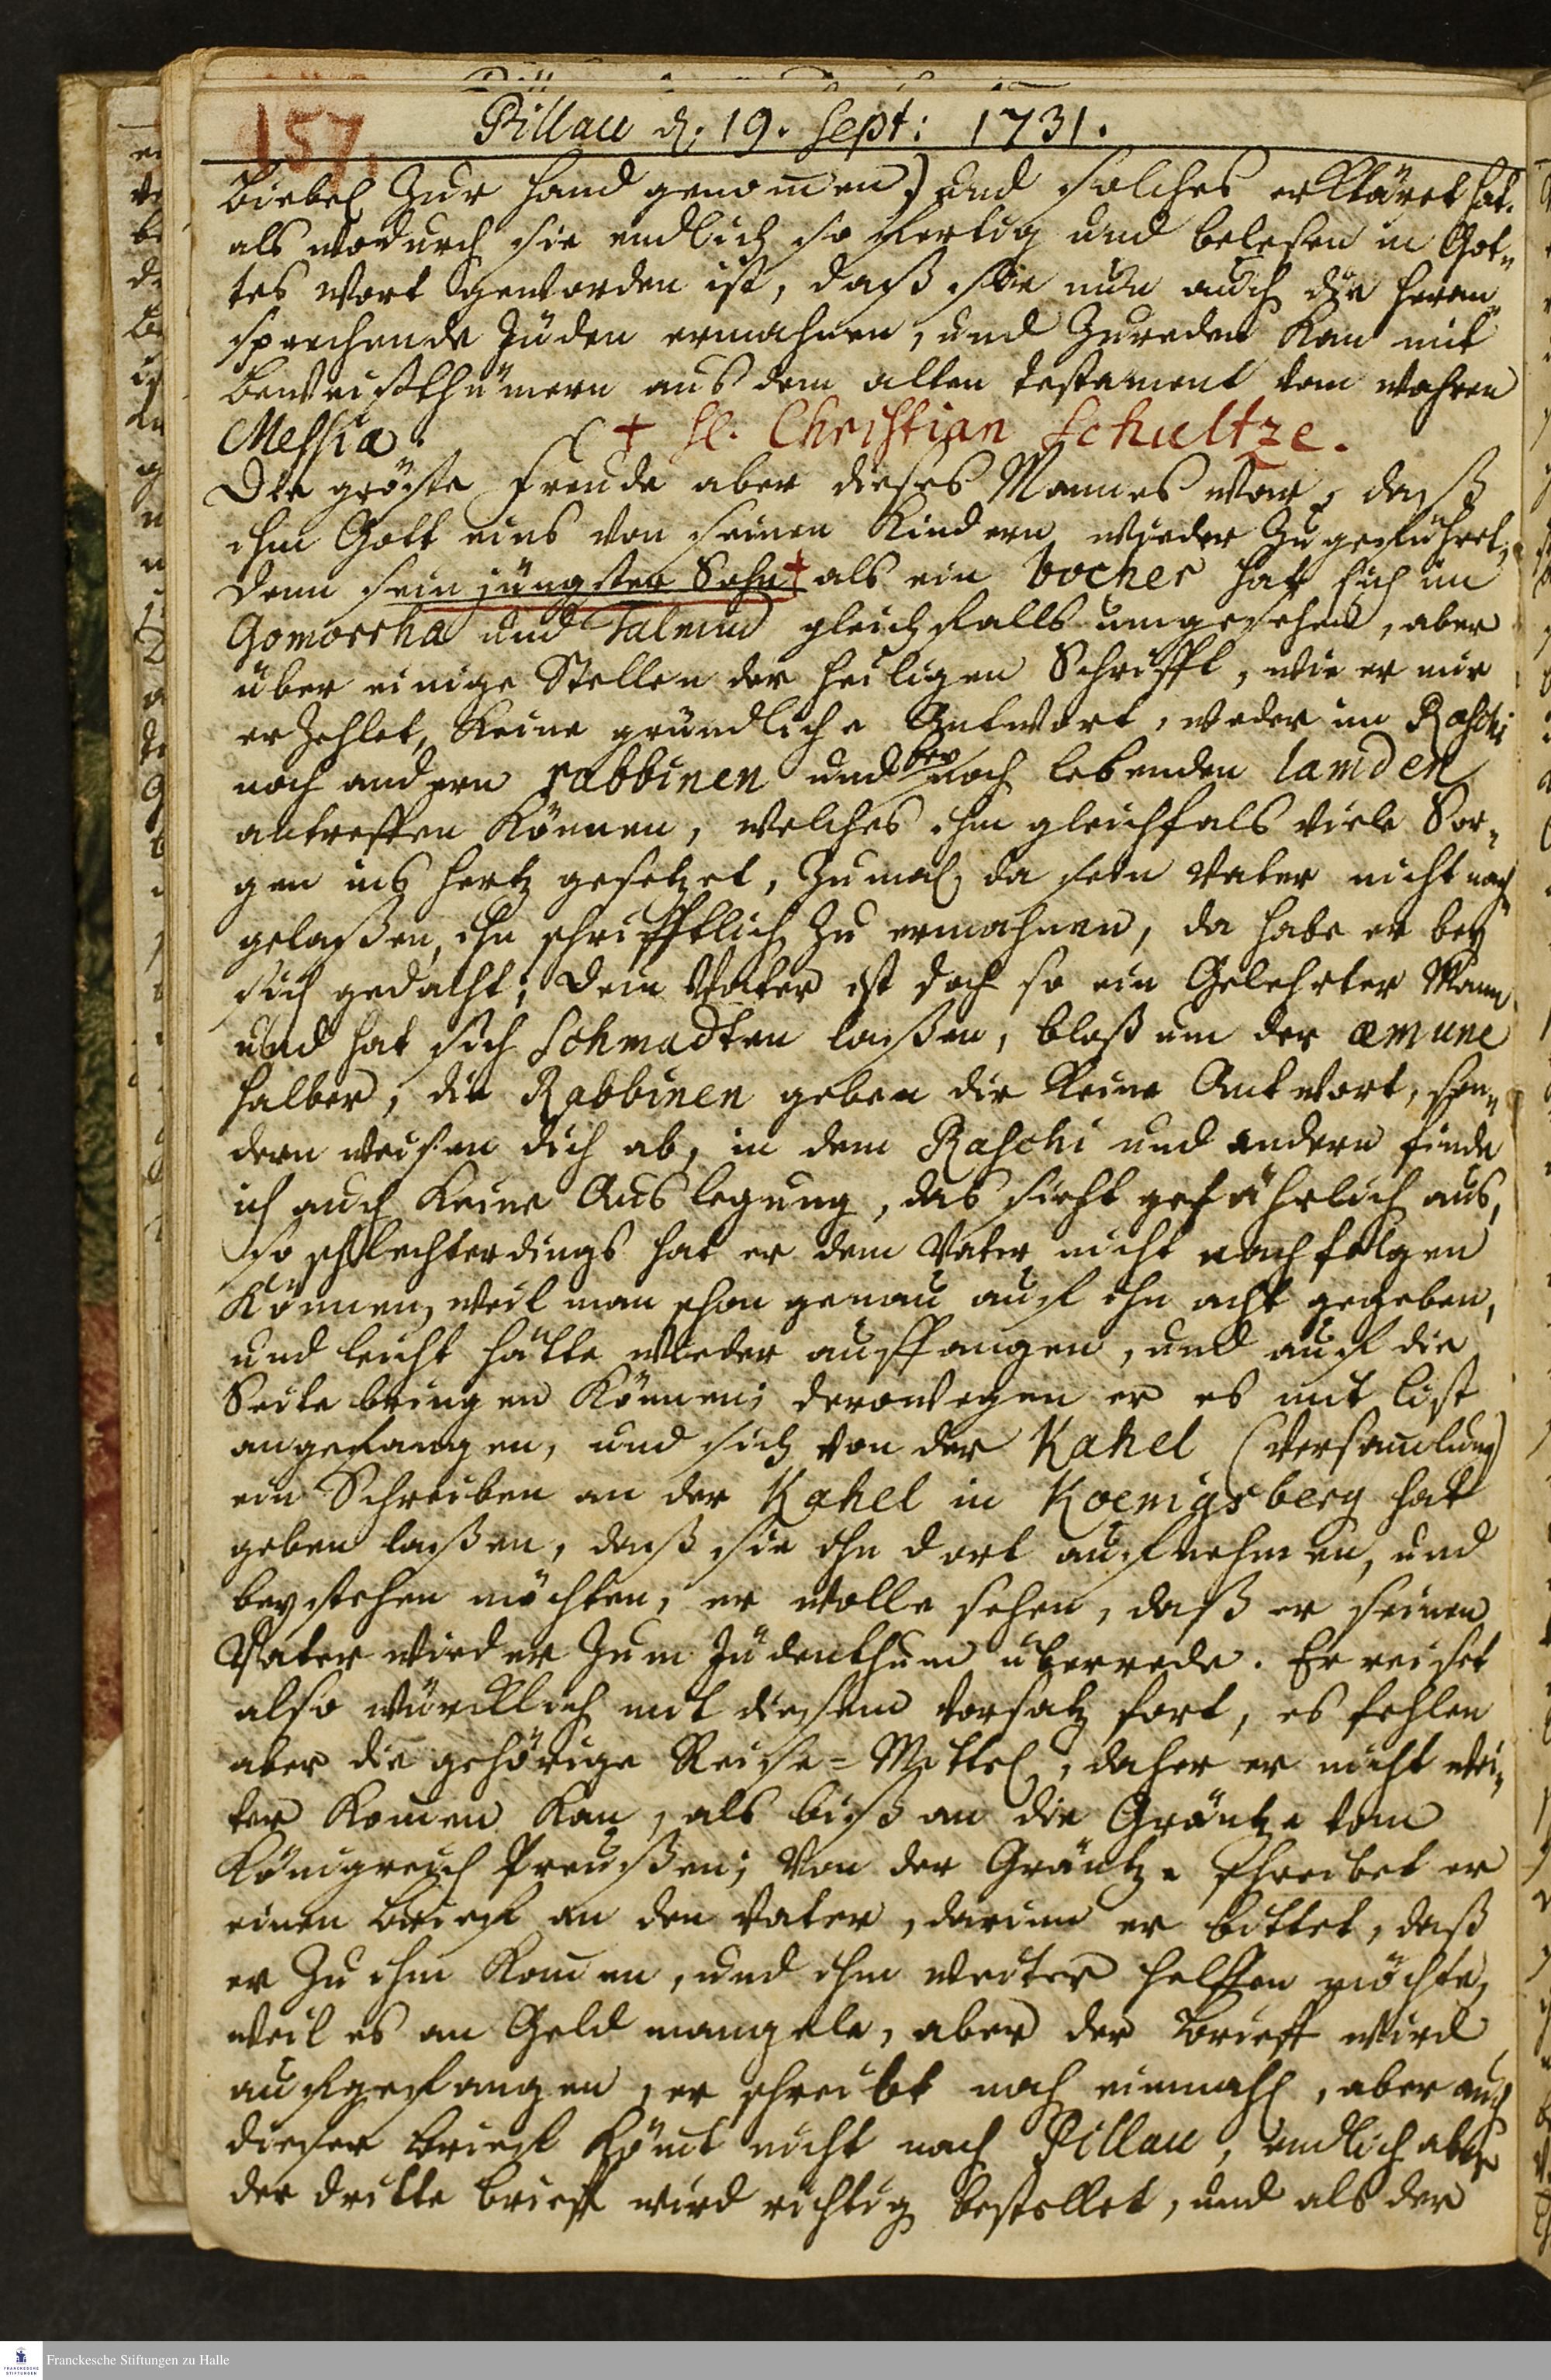 157.
Pillau d. 19. Sept: 1731.
Biebel zur Hand genom̅en) und solches erkläret hat.
als wodurch sie endlich so fertig und belesen in Got„
tes Wort geworden ist, daß sie nun auch die heran„
sprechende Jüden ermahnen, und zureden kan mit
Beweißthümern aus dem alten Testament vom wahren
Messia.
† H. Christian Schultze.
Die gröste Freude aber dieses Mannes war, daß
ihm Gott eins von seinen Kindern wieder zugeführet,
denn sein jüngster Sohn † als ein bocher hat sich im
Gomorrha und Talmud gleichfalls umgesehen, aber
über einige Stellen der heiligen Schrifft, wie er mir
erzehlet, keine gründliche Antwort, weder im Raschi
noch andern rabbinen und bey noch lebenden lamden
antreffen können, welches ihm gleichfals viele Sor„
gen ins Hertz gesetzet, zumal da sein Vater nicht nach
gelaßen, ihn schrifftlich zu ermahnen, da habe er bey
sich gedacht; dein Vater ist doch so ein Gelehrter Mann
und hat sich schmadten laißen, bloß um der æmune
halber, die Rabbinen geben dir keine Antwort, son„
dern weisen dich ab, in dem Raschi und andern finde
ich auch keine Auslegung, das sieht gefährlich aus,
so schlechterdings hat er dem Vater nicht nachfolgen
können, weil man schon genau auf ihn acht gegeben,
und leicht hätte wieder auffangen, und auf die
Seite bringen können; derowegen er es mit List
angefangen, und sich von der Kahel (Versam̅lung)
ein Schreiben an der Kahel in Koenigsberg hat
geben laißen, daß sie ihn dort aufnehmen, und
beystehen möchten, er wolle sehen, daß er seinen
Vater wieder zum Jüdenthum überrede. Er reiset
also würcklich mit diesem Vorsatz fort, es fehlen
aber die gehörige Reise=Mittel, daher er nicht wei„
ter kom̅en kan, als biß an die Gräntze vom
Königreich Preußen; Von der Gräntze schreibet er
einen Brief an den Vater, darinn er bittet, daß
er zu ihm kom̅en, und ihm weiter helffen möchte,
weil es an Geld mangele, aber der Brieff wird
aufgefangen, er schreibt noch einmahl, aber auch
dieser Brief köm̅t nicht nach Pillau, endlich aber
der dritte Brieff wird richtig bestellet, und als der
Franckesche Stiftungen zu Halle